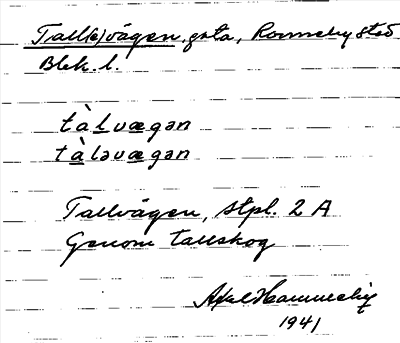 Tall(e)vägen, gata, Ronneby stad
Blek. l.
tàlvægən
tàləvægən
Tallvägen, stpl. 2 A
Genom tallskog
Axel Hammerby
1941